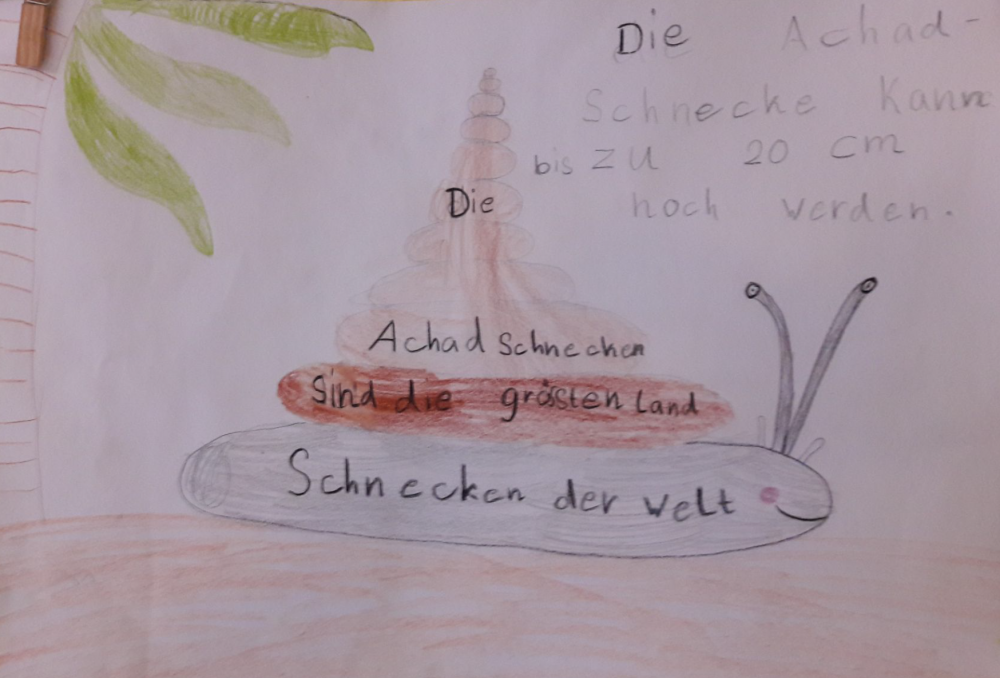 Die Achad-
Schnecke Kann
bis zu 20 cm
hoch werden.
Die
Achad Schnecken
Sind die grösten Land
Schnecken der Welt